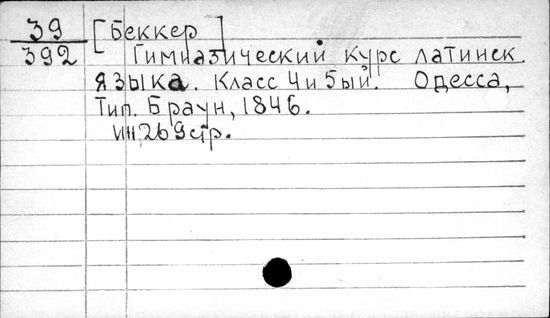 39 [Беккер]
392 Гимназический курс латинск.
языка. Класс 4 и 5ый. Одесса,
Тип. Браун, 1846.
269 стр.